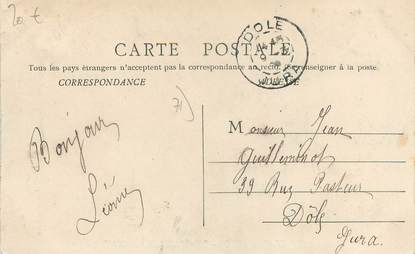 20 €
DOLE
JURA
CARTE POSTALE
Tous les pays étrangers n'acceptent pas la correspondance au recto. (Se renseigner à la poste.
CORRESPONDANCE
71)
Bonjour
Léonie
Monsieur Jean
Guilleminot
39 Rue Pasteur
Dôle
Jura.